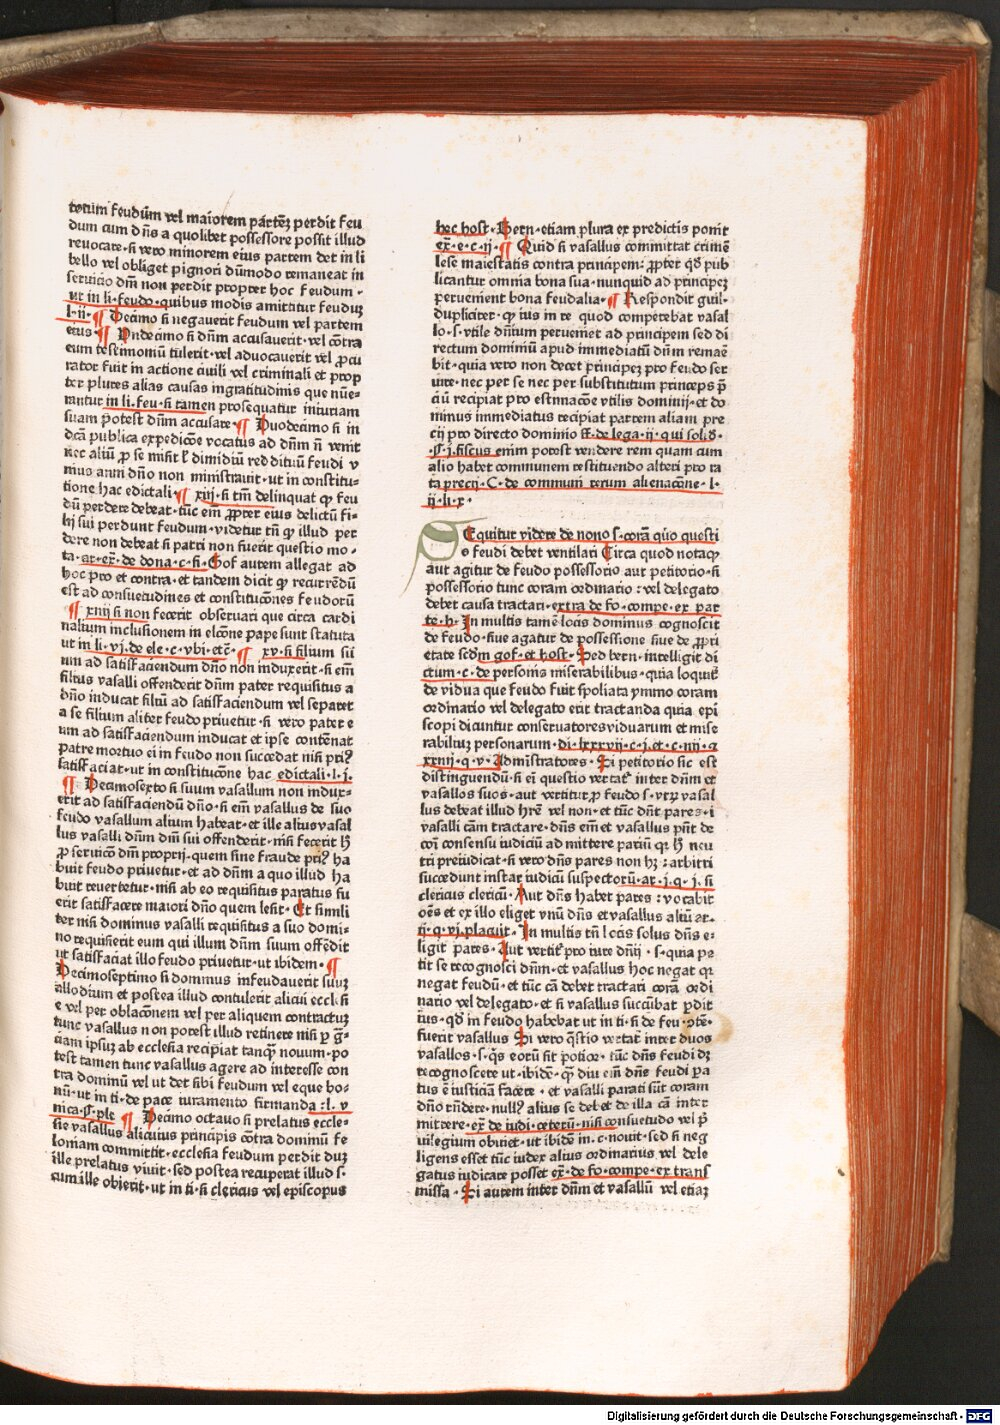 totum feudũm vel maiorem partẽ perdit feu
dum cum dñs a quolibet possessore possit illud
reuocare·si vero minorem eius partem det in li
bello vel obliget pignori dũmodo remaneat in
seruicio dñi non perdit propter hoc feudum·
ut in li·feudo·quibus modis amittitur feudũ
l·ii· ¶ Decimo si negauerit feudum vel partem
eius ¶ Vndecimo si dñm accusauerit·vel cõtra
eum testimoniũ tulerit·vel aduocauerit vel ꝓcu
rator fuit in actione ciuili vel criminali et prop
ter plures alias causas ingratitudinis que nũe-
rantur in li·feu·si tamen prosequatur iniuriam
suam potest dñm accusare ¶ Duodecimo si in
dc̃a publica expedicõe vocatus ad dñm ñ venit
nec aliũ ꝓ se misit l' dimidiũ reddituũ feudi v
nius anni dño non ministrauit·ut in constitu-
tione hac edictali ¶ xiij·si tm̃ delinquat ꝙ feu
dũ perdere debeat·tũc em̃ ꝓpter eius delictũ fi-
lij sui perdunt feudum·videtur tñ ꝙ illud per
dere non debeat si patri non fuerit questio mo-
ta·ar·ex̃·de dona·c·fi·Gof autem allegat ad
hoc pro et contra·et tandem dicit ꝙ recurrẽdũ
est ad consuetudines et constitucõnes feudorũ
¶ xiiij si non fecerit obseruari que circa cardi
nalium inclusionem in elcõne pape sunt statuta
ut in li·vj·de ele·c·vbi·etc̃· ¶ xv·si filium su
um ad satisfaciendum dño non induxerit·si em̃
filius vasalli offenderit dñm pater requisitus a
dño inducat filiũ ad satisfaciendum vel separet
a se filium aliter feudo priuetur·si vero pater e
um ad satisfaciendum inducat et ipse contẽnat
patre mortuo ei in feudo non succedat nisi pri9
satisfaciat·ut in constitucõne hac edictali·l·j·
¶ Decimosexto si suum vasallum non indux-
erit ad satisfaciendũ dño·si em̃ vasallus de suo
feudo vasallum alium habeat·et ille alius vasal
lus vasalli dñm dñi sui offenderit·nisi fecerit hͦ
ꝓ seruicõ dñi proprij·quem sine fraude pri9 ha
buit feudo priuetur·et ad dñm a quo illud ha
buit reuertetur·nisi ab eo requisitus paratus fu
erit satisfacere maiori dño quem lesit·Et simili
ter nisi dominus vasalli requisitus a suo domi-
no requisierit eum qui illum dñm suum offẽdit
ut satisfaciat illo feudo priuetur·ut ibidem· ¶
Decimoseptimo si dominus infeudauerit suũ
allodium et postea illud contulerit alicui ecclesi
e vel per oblacõnem vel per aliquem contractũ
tunc vasallus non potest illud retinere nisi ꝑ g̃-
ciam ipsiũ ab ecclesia recipiat tanꝙ̃ nouum·po
test tamen tunc vasallus agere ad interesse con
tra dominũ vel ut det sibi feudum vel eque bo-
nũ·ut in ti·de pace iuramento firmanda·l·v
nica·¶·ple ¶ Decimo octauo si prelatus eccle-
sie vasallus alicuius principis cõtra dominũ fe
loniam committit·ecclesia feudum perdit dum
ille prelatus viuit·sed postea recuperat illud s·
cum ille obierit·ut in ti·si clericus vel episcopus
hec host·Bern·etiam plura ex predictis ponit
ex̃·e·c·ij· ¶ Quid si vasallus committat crimẽ
lese maiestatis contra principem: ꝓpter qd̃ pub
licantur omnia bona sua·nunquid ad principẽ
peruenient bona feudalia· ¶ Respondit guil·
dupliciter·ꝙ ius in re quod competebat vasal
lo·s·vtile dñium perueniet ad principem sed di
rectum dominiũ apud immediatũ dñm remaẽ
bit·quia vero non decet principẽ pro feudo ser
uire·nec per se nec per substitutum princeps p̃
ciũ recipiat pro estimacõe vtilis dominij·et do
minus immediatus recipiat partem aliam pre
cij pro directo dominio ff·de lega·ij·qui solid̾·
·¶·j·fiscus enim potest vendere rem quam cum
alio habet communem restituendo alteri pro ra
ta precij·C·de communi rerum alienacõne·l·
ij·li·x·
SEquitur videre de nono s·corã quo questi
o feudi debet ventilari Circa quod notaꝙ
aut agitur de feudo possessorio aut petitorio·si
possessorio tunc coram ordinario: vel delegato
debet causa tractari·extra de fo·compe·ex par
te·b·In multis tamẽ locis dominus cognoscit
de feudo·siue agatur de possessione siue de ꝓpri
etate scd̃m gof·et host·Sed bern·intelligit di
ctum·c·de personis miserabilibus·quia loquit̃
de vidua que feudo fuit spoliata ymmo coram
ordinario vel delegato erit tractanda quia epĩ
scopi dicuntur conseruatores viduarum et mise
rabiliũ personarum·di·lxxxvij·c·j·et·c·nĩ·q
xxiij·q·v·Administratores·Si petitorio sic est
distinguendũ·si em̃ questio vertat̃ inter dñm et
vasallos suos·aut vertitur ꝓ feudo s·vtꝝ vasal
lus debeat illud hr̃e vel non·et tũc dñt pares·i
vasalli cãm tractare·dñs em̃ et vasallus pñt de
cõi consensu iudiciũ admittere pariũ qr̃ hͦ neu
tri preiudicat·si vero dñs pares non hꝫ: arbitri
succedunt instar iudicũ suspectorũ·ar·j·q·j·si
clericus clericũ·Aut dñs habet pares: vocabit
oẽs et ex illo eliget vnũ dñs et vasallus aliũ ar·
ij·q·vj·placuit·In multis tñ locis solus dñs e-
ligit pares·Aut vertit̃ pro iure dñij·s·quia pe
tit se recognosci dñm·et vasallus hoc negat qr̃
negat feudũ·et tũc cã debet tractari corã ordi
nario vel delegato·et si vasallus succũbat ꝑdit
ius·qd̃ in feudo habebat ut in ti·si de feu·ↄte̾·
fuerit vasallus Si vero q̃stio vertat̃ inter duos
vasallos·s·q̾s eorũ sit potior·tũc dñs feudi dꝫ
recognoscere ut·ibidẽ·ꝙ̃ diu em̃ dñs feudi ꝑa
tus ẽ iusticiã facere·et vasalli parati sũt coram
dño rñdere·null9 alius se debet de illa cã inter
mittere·ex̃·de iudi·ceterũ·nisi consuetudo vel p̃
uilegium obuiet·ut ibidẽ in·c·nouit·sed si neg
ligens esset tũc iudex alius ordinarius vel dele
gatus iudicare posset ex̃·de fo·compe·ex trans
missa·Si autem inter dñm et vasallũ vel etiaꝫ
Digitalisierung gefördert durch die Deutsche Forschungsgemeinschaft - DFG